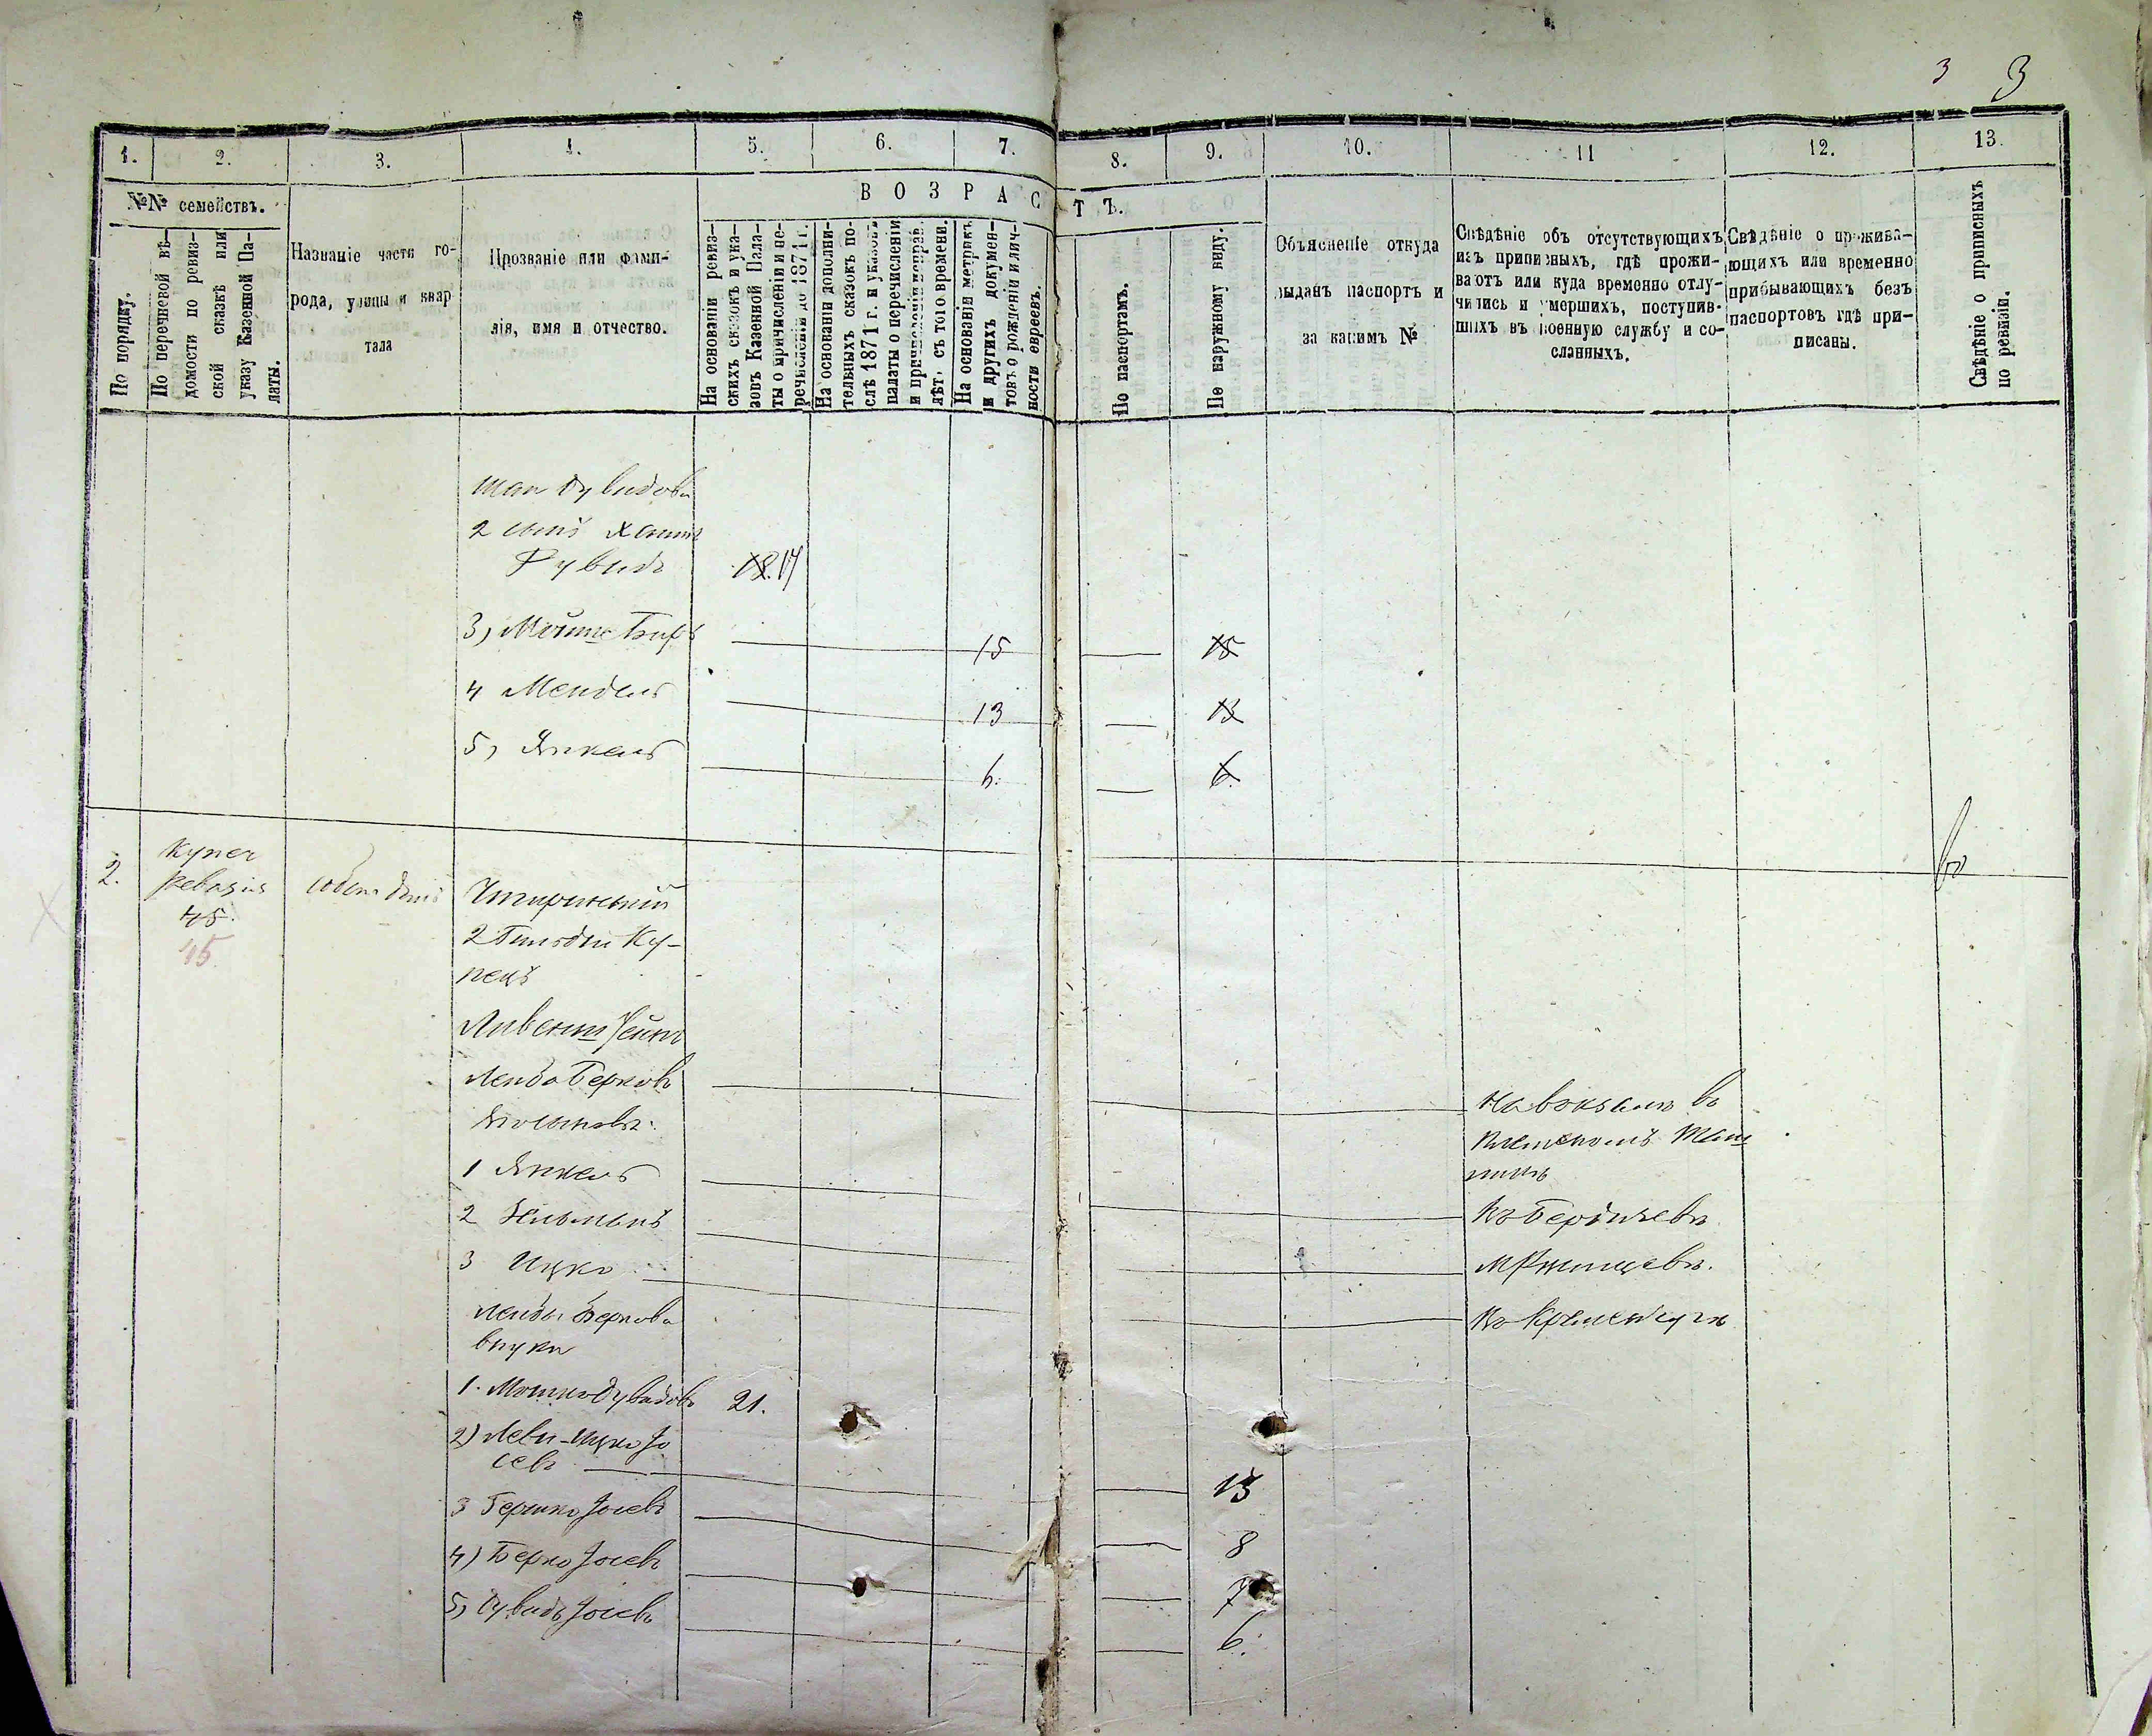 3 3
1. 2. 3. 4. 5. 6. 7. 8. 9. 10. 11 12. 13.
№№ семействъ.
В О З Р А С Т Ъ.
По порядку.
По перечневой вѣ-
домости по ревиз-
ской сказкѣ или
указу Казенной Па-
латы.
Названіе части го-
рода, улицы и квар
тала
Прозваніе или фами-
лія, имя и отчество.
На основаніи ревиз-
скихъ сказокъ и ука-
зовъ Казенной Пала-
ты о причисленіи и пе-
речисленіи до 1871 г.
На основаніи дополни-
тельныхъ сказокъ по-
слѣ 1871 г. и указовъ
палаты о перечисленіи
лѣт, съ того времени.
На основаніи метрикъ
и другихъ докумен-
товъ о рожденіи и лич-
ности евреевъ.
По паспортамъ.
По наружному виду.
Объясненіе откуда
выданъ паспортъ и
за какимъ №
Свѣдѣніе объ отсутствующихъ
изъ приписныхъ, гдѣ прожи-
ваютъ или куда временно отлу-
чились и умершихъ, поступив-
шихъ въ военную службу и со-
сланныхъ.
Свѣдѣніе о прожива-
ющихъ или временно
прибывающихъ безъ
паспортовъ гдѣ при-
писаны.
Свѣдѣніе о приписныхъ
по ревизіи.
Дувидова
2 сынъ
Дувидъ 18. 17
3, Мошко Беръ 15 15
4 Мендель 13 13
5, Янкель 6. 6.
2. Купеч
Ревизія
45.
45
2 Гильдіи Ку-
пецъ
Лейба Берковъ
1 Янкель
2
3 Ицко
Лейбы Беркова
внуки
На вокзалѣ во
Въ Бердичевѣ
М Ржищевѣ.
Въ Кременчугѣ
1. Мошко Дувидовъ 21.
2) Леви-Ицко Іо
севъ 13
3 Гершко Іосевъ 8
4) Берко Іосевъ 7
5, Дувидъ Іосевъ 6.